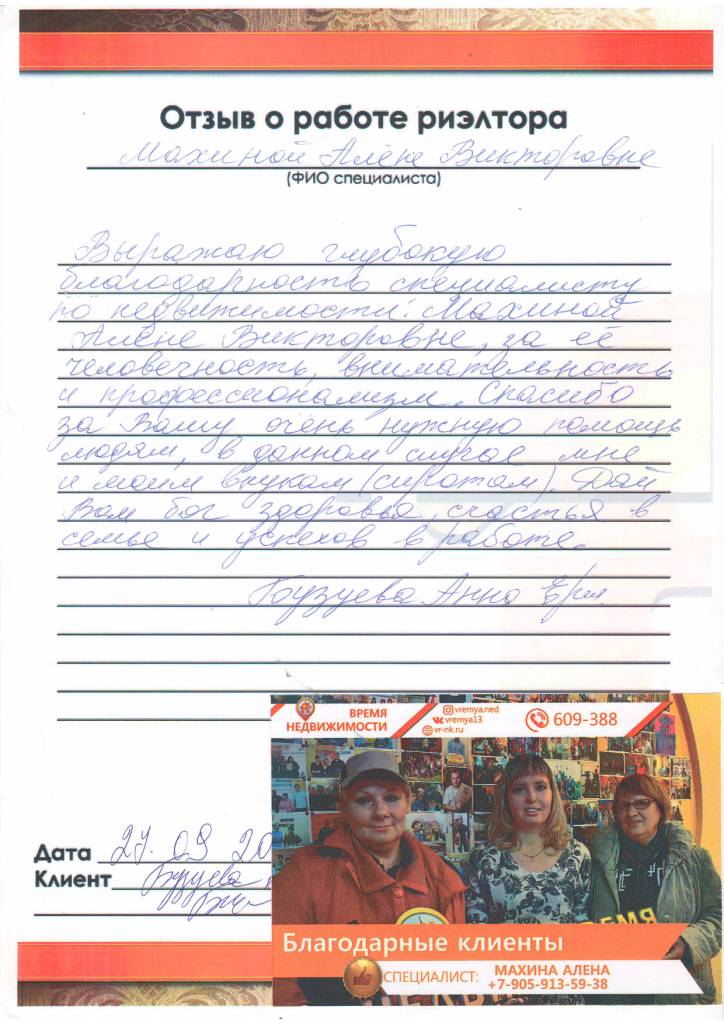 Отзыв о работе риэлтора
Махиной Алёне Викторовне
(ФИО специалиста)
Выражаю глубокую
благодарность специалисту
по недвижимости: Махиной
Алёне Викторовне, за её
человечность, внимательность
и профессионализм. Спасибо
за Вашу очень нужную помощь
людям, в данном случае мне
и моим внукам (сиротам). Дай
Вам бог здоровья, счастья в
семье и успехов в работе.
Анна
ВРЕМЯ
НЕДВИЖИМОСТИ
vremya.ned
vremya13
vr-nk.ru
609-388
Дата 27. 09 20
Клиент
Благодарные клиенты
СПЕЦИАЛИСТ: МАХИНА АЛЕНА
+7-905-913-59-38